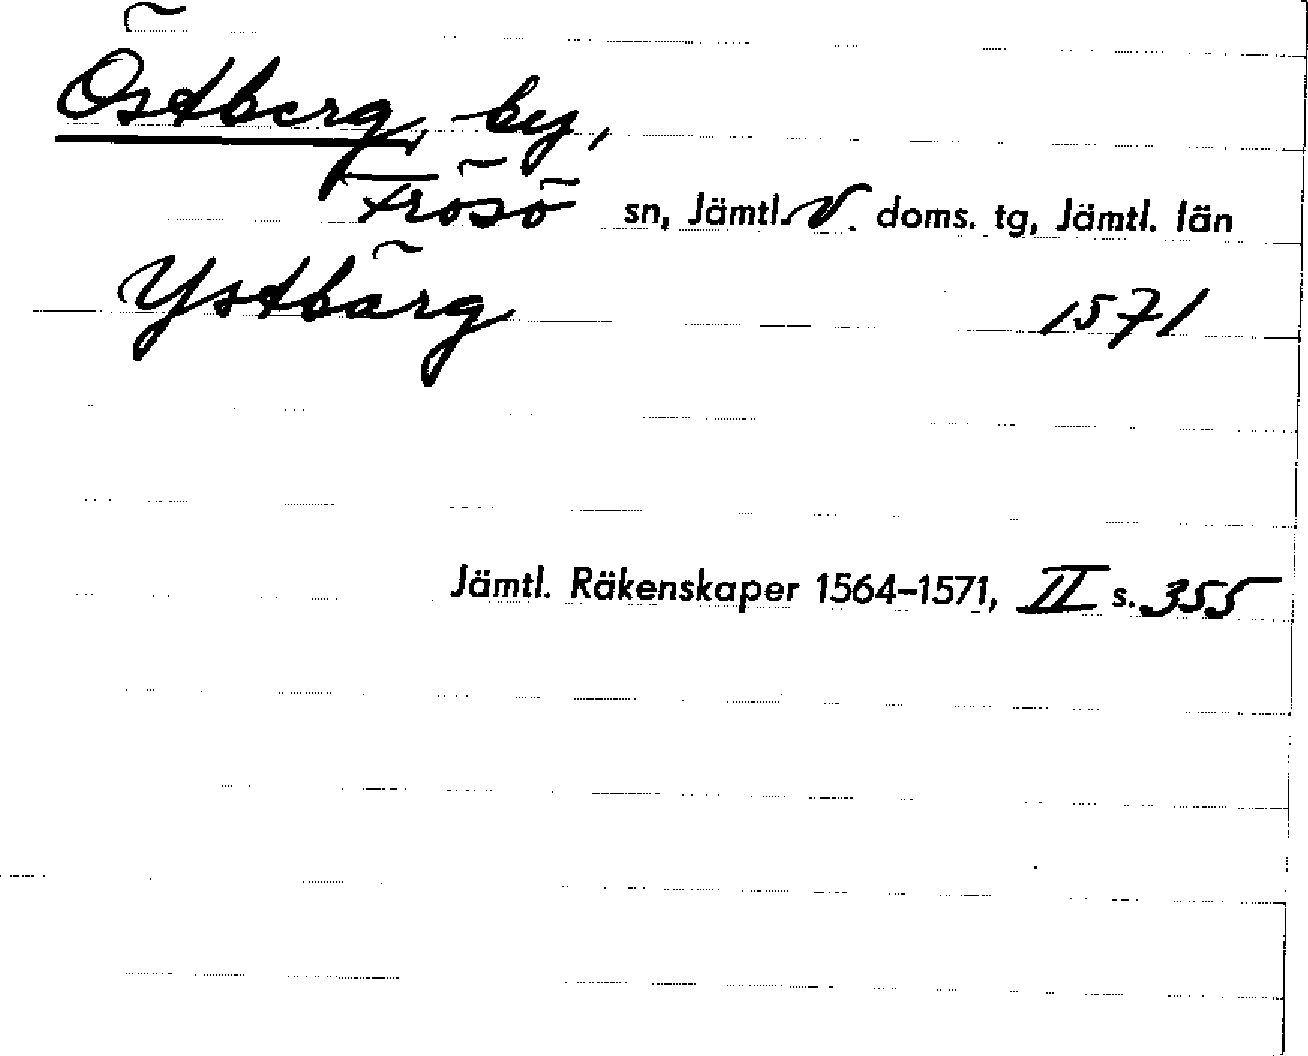 Östberg, by,
Frösö sn, Jämtl. V. doms. tg, Jämtl. län
Ystbärg 1571
Jämtl. Räkenskaper 1564–1571, II s. 355